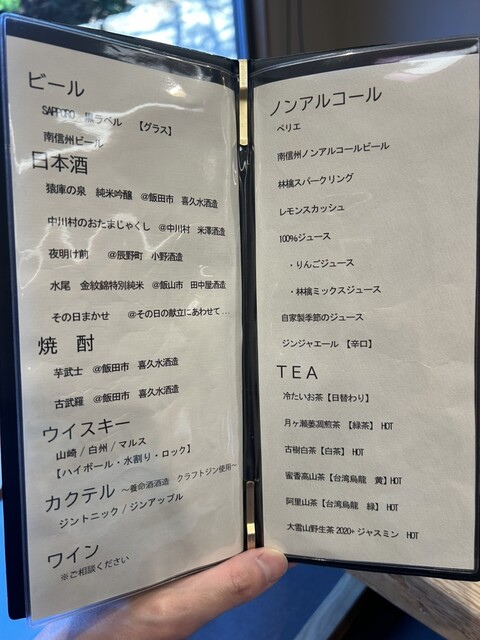 ビール
SAPPORO 黒ラベル 【グラス】
南信州ビール
日本酒
猿庫の泉 純米吟醸 @飯田市 喜久水酒造
中川村のおたまじゃくし @中川村 米澤酒造
夜明け前 @辰野町 小野酒造
水尾 金紋錦特別純米 @飯山市 田中屋酒造
その日まかせ @その日の献立にあわせて...
焼 酎
芋武士 @飯田市 喜久水酒造
古武羅 @飯田市 喜久水酒造
ウイスキー
山崎 / 白州 / マルス
【ハイボール・水割り・ロック】
カクテル ～養命酒酒造 クラフトジン使用～
ジントニック / ジンアップル
ワイン
※ご相談ください
ノンアルコール
ペリエ
南信州ノンアルコールビール
林檎スパークリング
レモンスカッシュ
100%ジュース
・りんごジュース
・林檎ミックスジュース
自家製季節のジュース
ジンジャエール 【辛口】
TEA
冷たいお茶【日替わり】
月ヶ瀬萎凋煎茶 【緑茶】 HOT
古樹白茶【白茶】 HOT
蜜香高山茶【台湾烏龍 黄】HOT
阿里山茶【台湾烏龍 緑】 HOT
大雪山野生茶 2020+ ジャスミン HOT